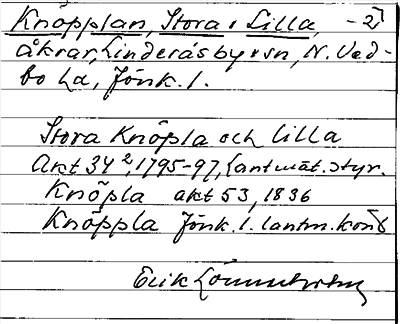 Knöpplan, Stora o Lilla, -2]
åkrar, Linderås by o sn, N. Ved-
bo hd, Jönk. l.
Stora Knöpla och lilla
Akt 34², 1795-97, Lantmät. styr.
Knöpla akt 53, 1836
Knöppla Jönk. l. lantm. kont
Erik